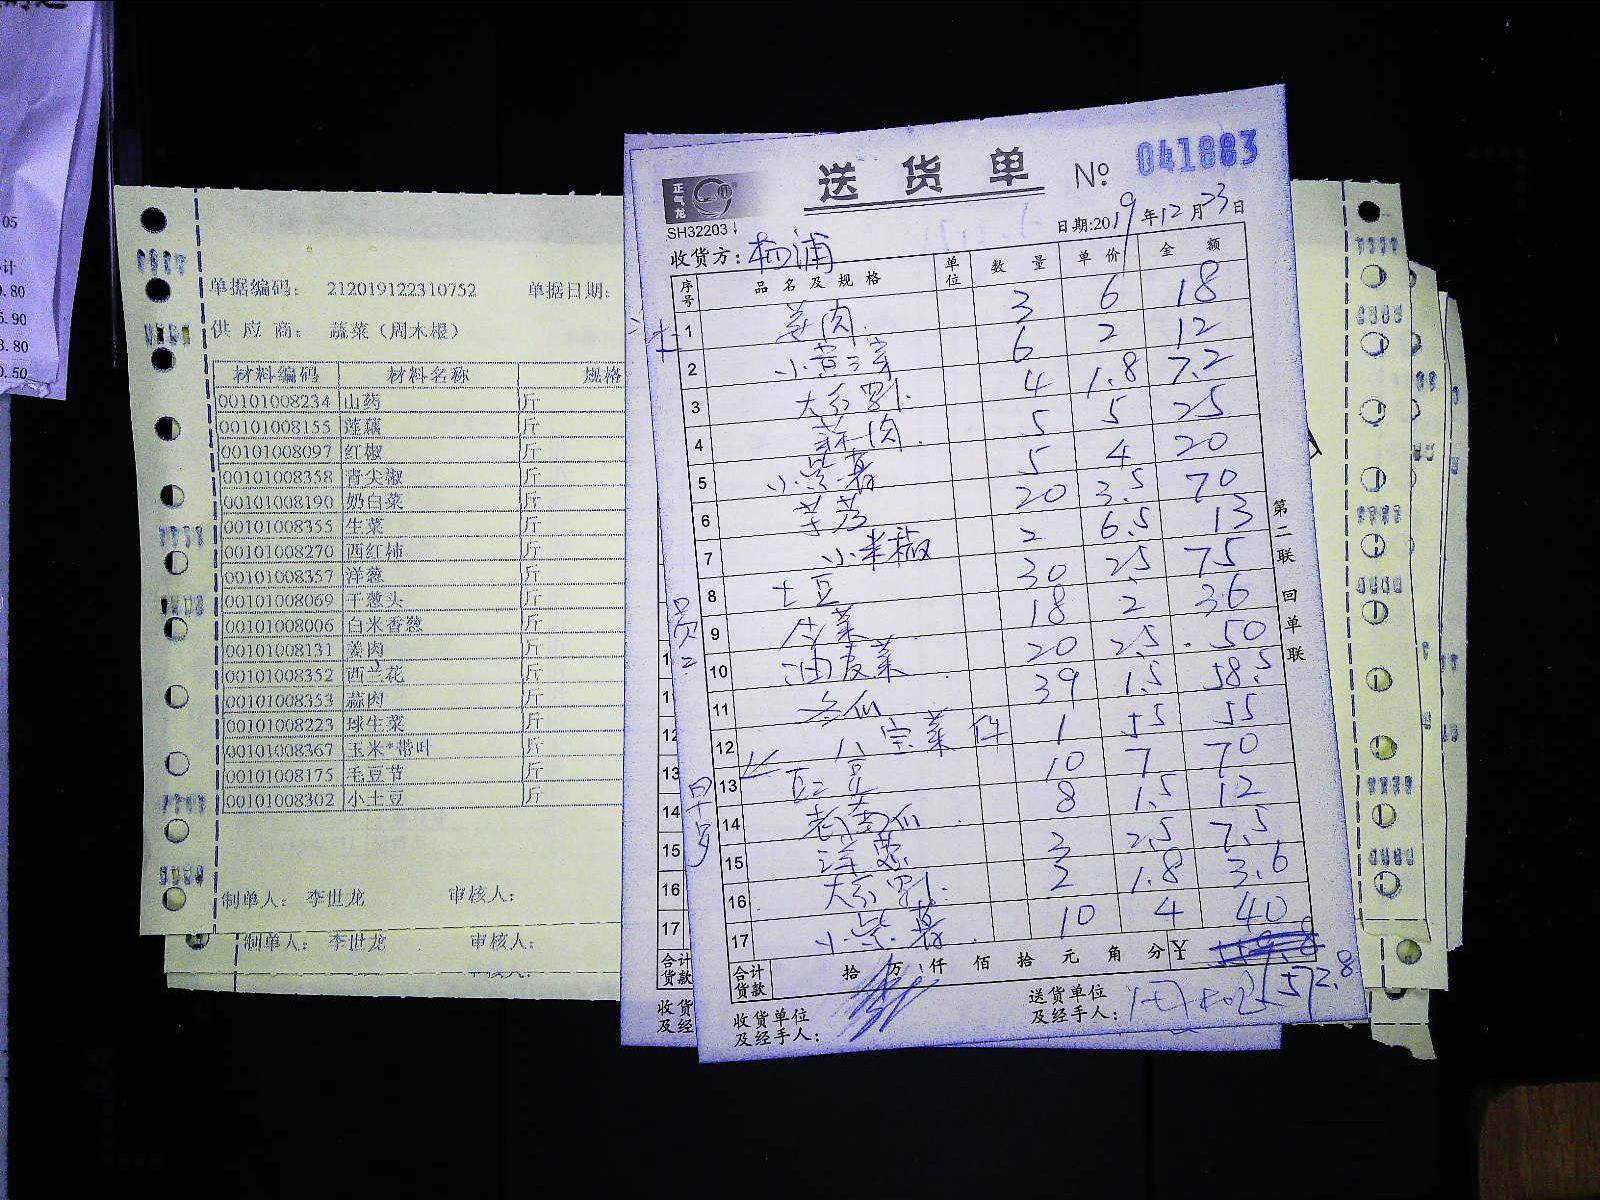 05
计
0.80
5.90
3.80
0.50
单据编码： 212019122310752 单据日期：
供 应 商： 蔬菜（周木根）
材料编码 材料名称 规格
00101008234 山药 斤
00101008155 莲藕 斤
00101008097 红椒 斤
00101008358 青尖椒 斤
00101008190 奶白菜 斤
00101008355 生菜 斤
00101008270 西红柿 斤
00101008357 洋葱 斤
00101008069 干葱头 斤
00101008006 白米香葱 斤
00101008131 姜肉 斤
00101008352 西兰花 斤
00101008353 蒜肉 斤
00101008223 球生菜 斤
00101008367 玉米*带叶 斤
00101008175 毛豆节 斤
00101008302 小土豆 斤
制单人： 李世龙 审核人：
制单人： 李世龙 审核人：
正气龙
送 货 单 No 041883
SH32203
日期:2019年12月23日
收货方：杨浦
序号 品 名 及 规 格 单位 数 量 单 价 金 额
1 姜肉 3 6 18
2 小黄 6 2 12
3 4 1.8 7.2
4 蒜肉 5 5 25
5 小紫薯 5 4 20
6 20 3.5 70
7 小米椒 2 6.5 13
8 土豆 30 2.5 75
9 18 2 36
10 油麦菜 20 2.5 50
11 冬瓜 39 1.5 58.5
12 菜 件 1 55 55
13 10 7 70
14 老南瓜 8 1.5 12
15 洋葱 3 2.5 7.5
16 2 1.8 3.6
17 小紫薯 10 4 40
合计货款 拾 万 仟 佰 拾 元 角 分 ¥
572.8
收货单位及经手人： 送货单位及经手人：
第二联 回单联
13
14
15
16
17
合计货款
收货
及经